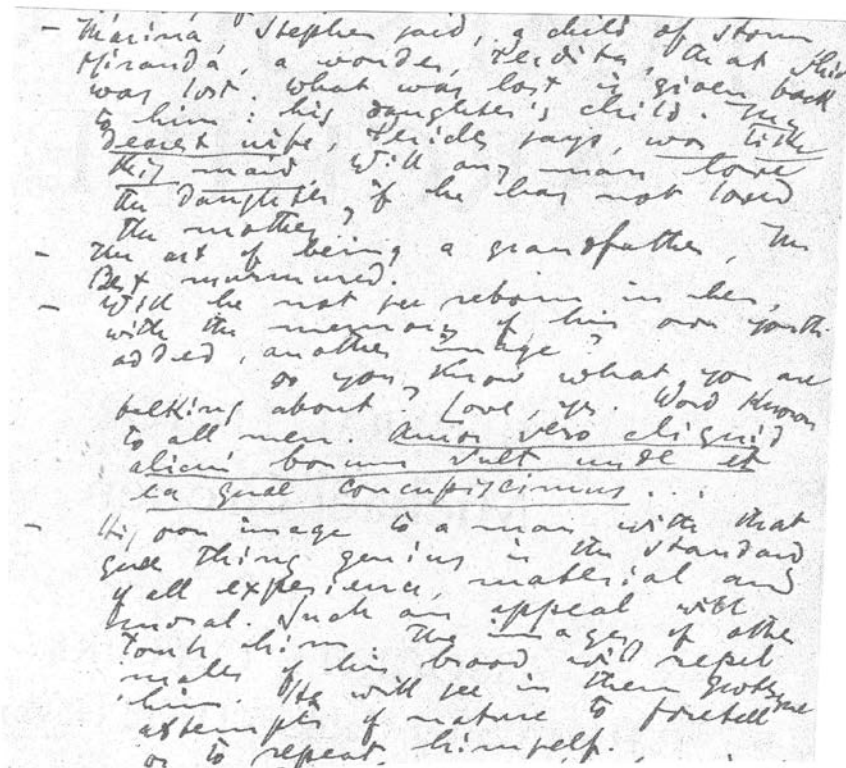 – Marina, Stephen said, a child of storm
Miranda, a wonder, Perdita, that which
was lost. What was lost is given back
to him: his daughter's child. My
dearest wife, Pericles says, was like
this maid. Will any man love
the daughter if he has not loved
the mother?
– The art of being a grandfather, Mr
Best murmured.
– Will he not see reborn in her,
with the memory of his own youth
added, another image?
Do you know what you are
talking about? Love, yes. Word known
to all men. Amor vero aliquid
alicui bonum vult unde et
ea quae concupiscimus...
– His own image to a man with that
queer thing genius is the standard
of all experience, material and
moral. Such an appeal will
touch him. The images of other
males of his brood will repel
him. He will see in them grotesque
attempts of nature to foretell
or to repeat himself.